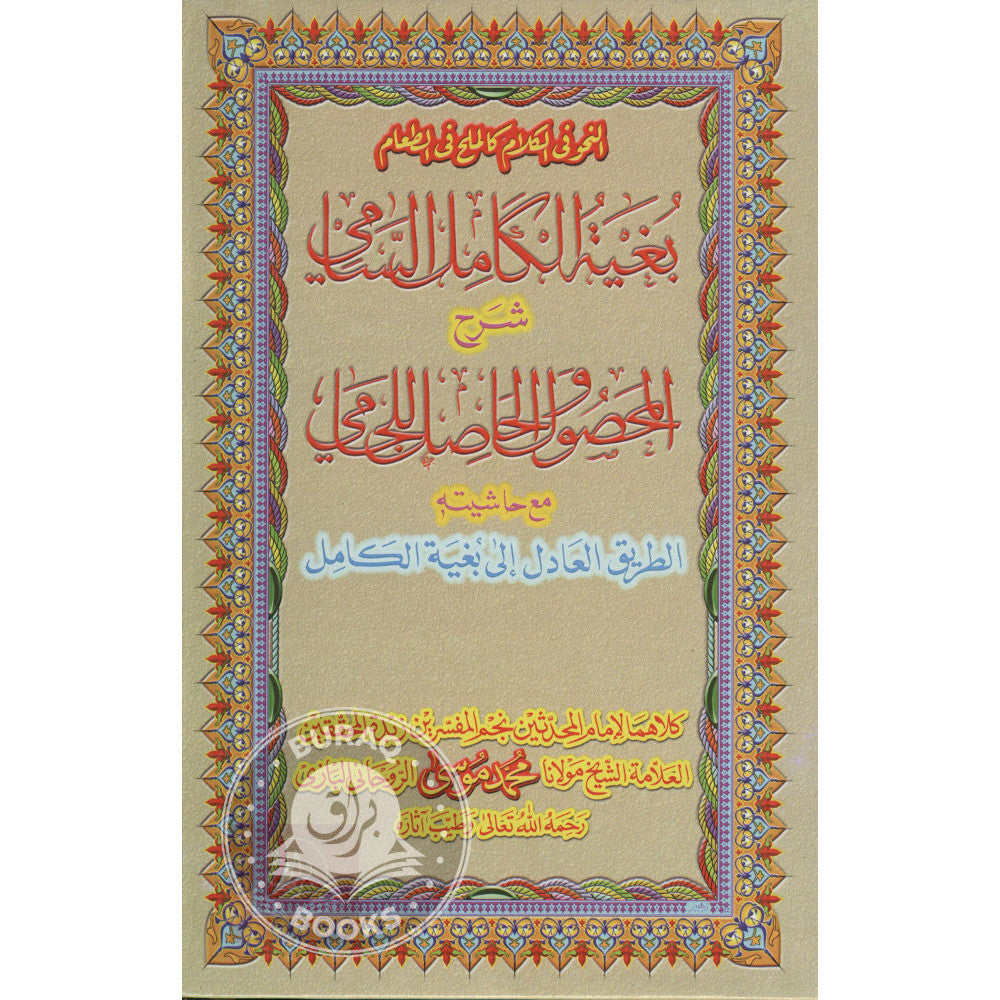 النحو في الكلام كالملح في الطعام
بُغيَةُ الكَامِل السَّامِي
شَرح
المَحصُول وَالحَاصِل لِلجَامِي
مع حاشيته
الطريق العَادل إلىٰ بُغية الكَامِل
كلاهمَا لإمام المحدّثين نجم المفسّرين زبدة المحقّقين
العَلّامة الشّيخ مَولانا محمّد موسىٰ الرّوحَاني البَازي
رَحمَهُ اللهُ تعَالىٰ وَطيّبَ آثاره
BURAQ
براق
BOOKS